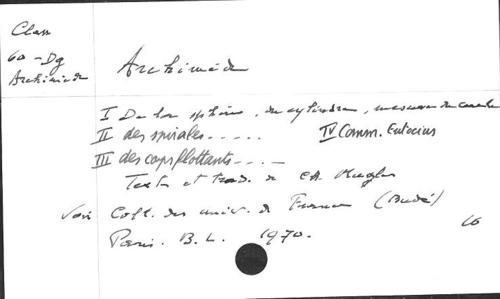 Class
60 - Dg
Archimède
Archimède
I De la sphère, du cylindre, mesure du cercle
II des spirales - - - - - IV Comm. Eutocius
III des corps flottants - - - - -
Texte et trad. de Ch. Mugler
Voir Coll. des univ. de France (Budé)
Paris. B. L. 1970.